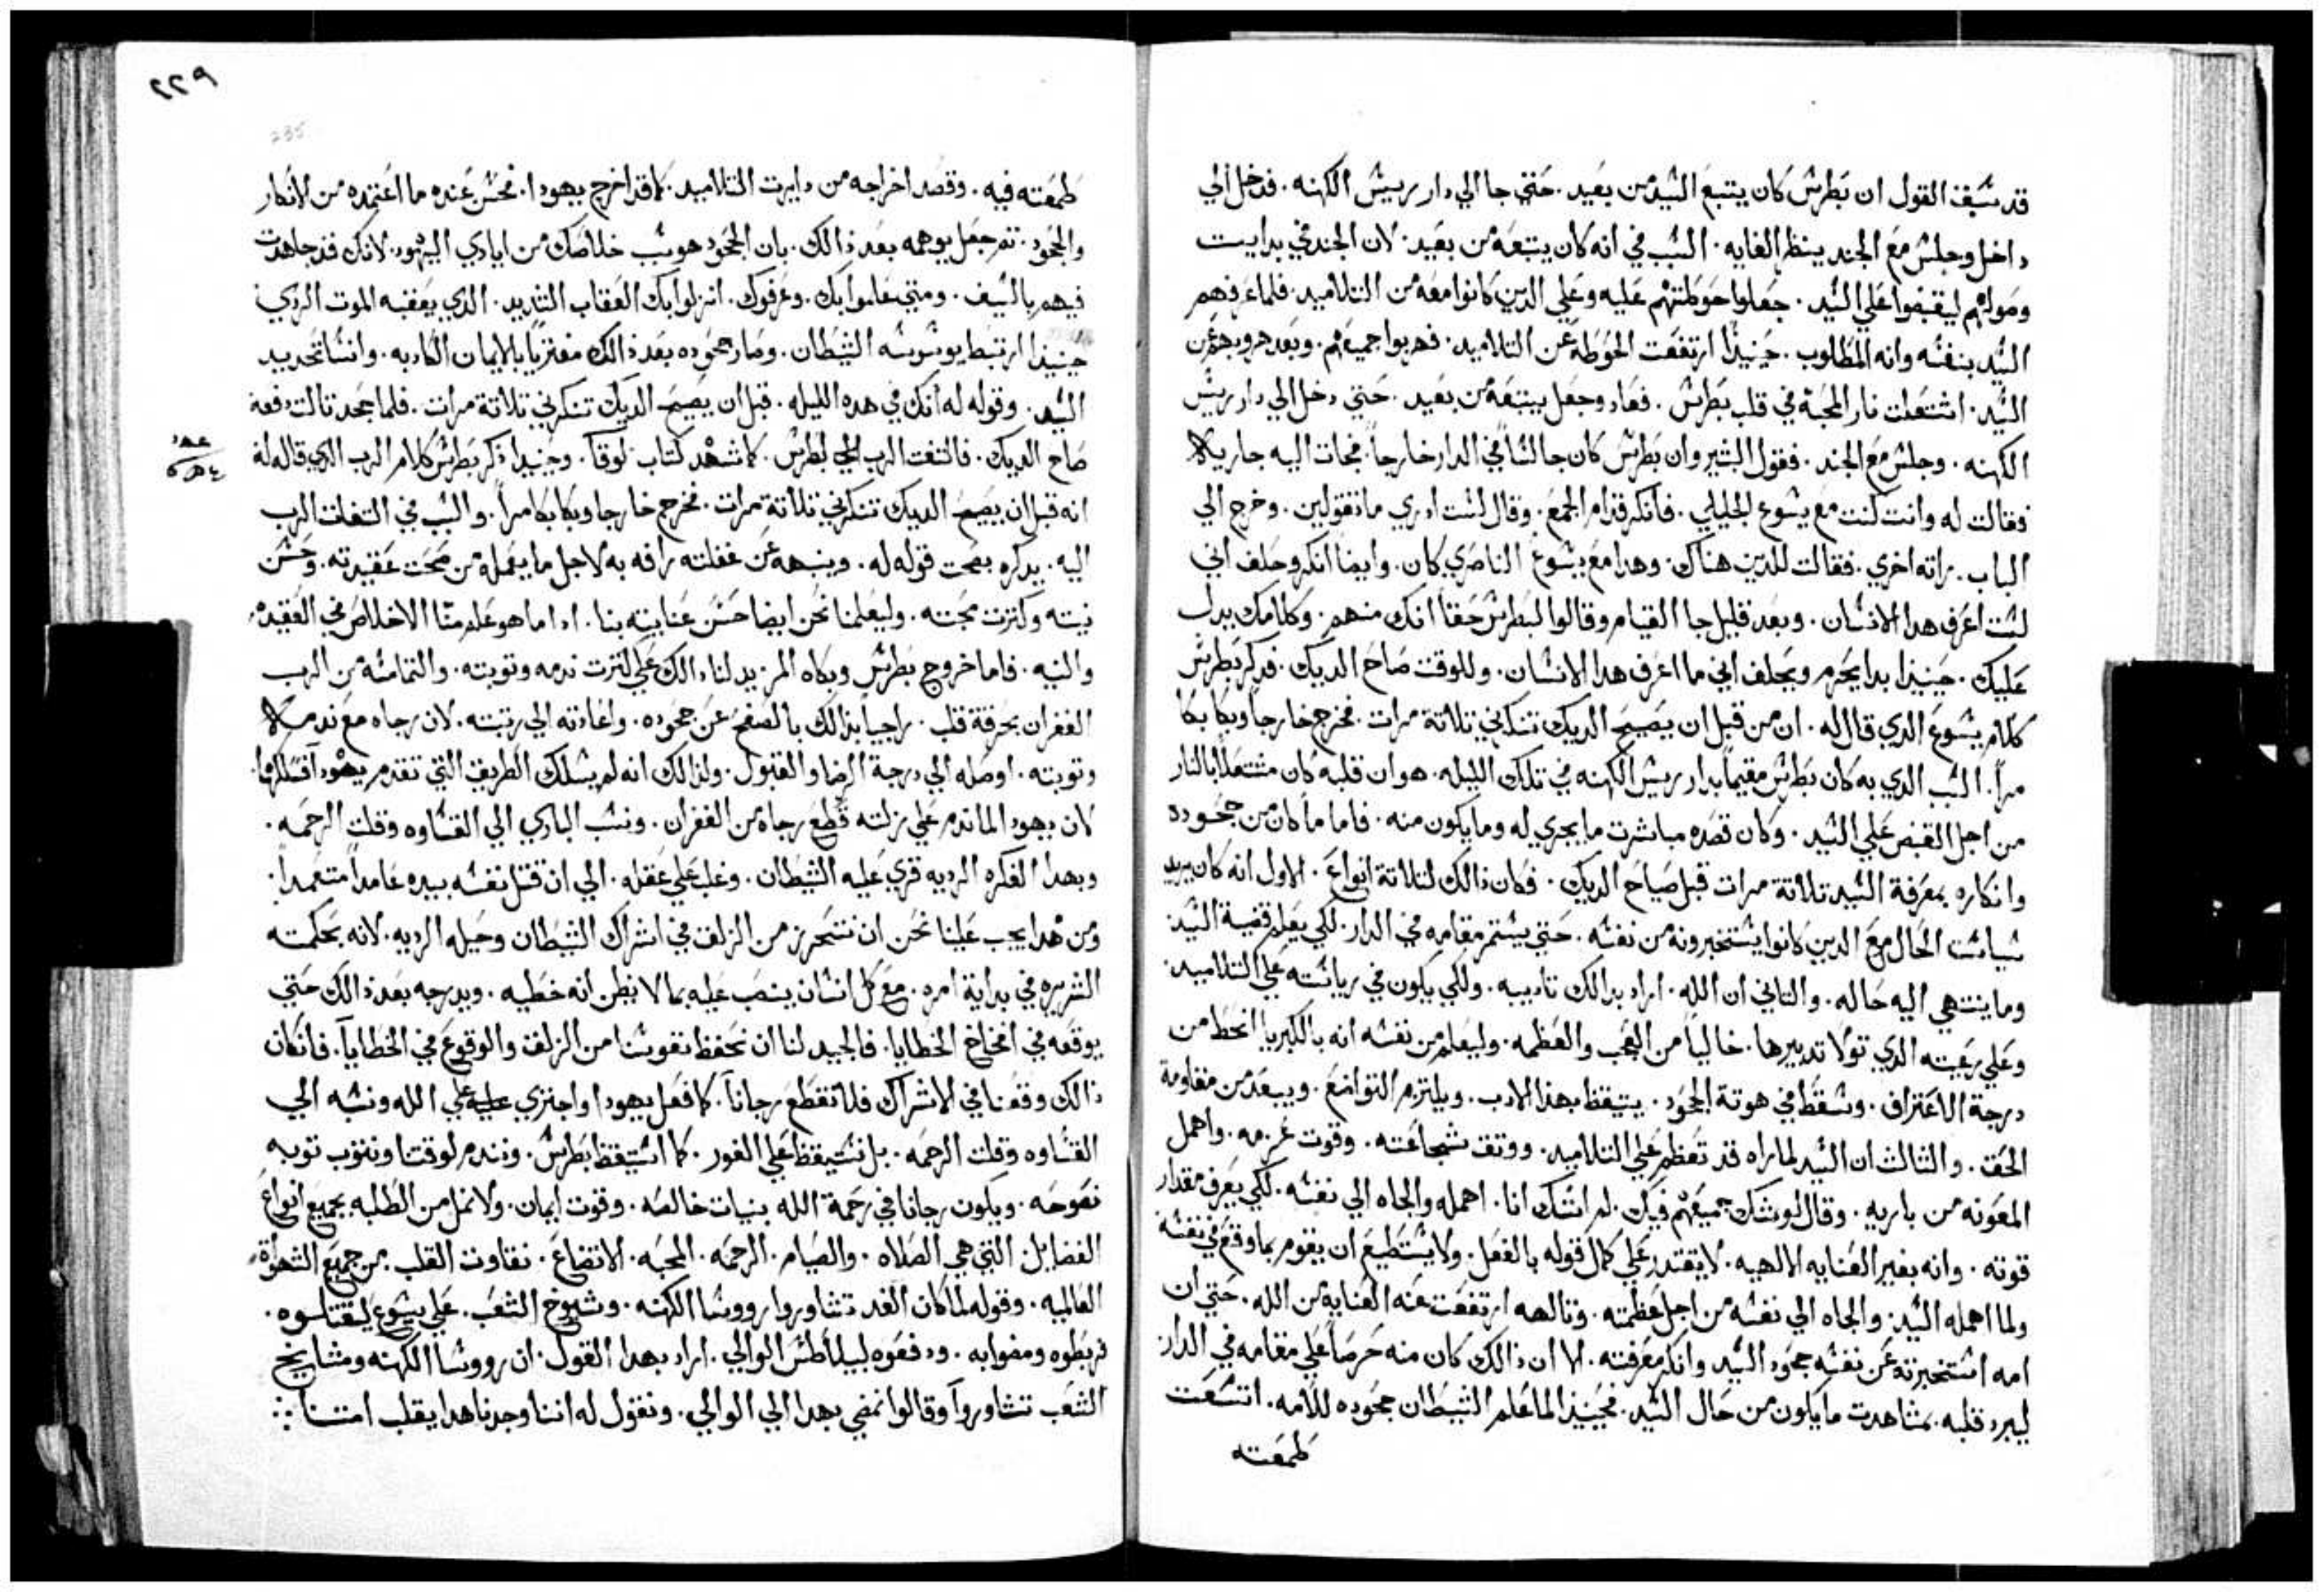 قد سبق القول ان بطرس كان يتبع السيد من بعيد. حتي جا الي دار رييس الكهنه. فدخل الي
داخل وجلس مع الجند ينظر الغايه. السبب في انه كان يتبعه من بعيد. لان الجند في بدايت
وصولهم ليقبضوا علي السيد. جعلوا حوطتهم عليه وعلي الدين كانوا معه من التلاميد. فلما عرفهم
السيد بنفسه وانه المطلوب. حينيذا ارتفعت الحوطه عن التلاميد. فهربوا جميعهم. وبعد هروبهم عن
السيد. اشتعلت نار المحبه في قلب بطرس. فعاد وجعل يتبعه من بعيد. حتي دخل الي دار رييس
الكهنه. وجلس مع الجند. فقول البشير وان بطرس كان جالسا في الدار خارجاً. فجات اليه جاريه
فقالت له وانت كنت مع يسوع الجليلي. فانكر قدام الجمع. وقال لست ادري ما تقولين. وخرج الي
الباب. راته اخري. فقالت للدين هناك. وهدا مع يسوع الناصري كان. وايضاً انكر وحلف اني
لست اعرف هدا الانسان. وبعد قليل جا القيام وقالوا لبطرس حقاً انك منهم. وكلامك يدل
عليك. حينيذا بدا يحرم ويحلف اني ما اعرف هدا الانسان. وللوقت صاح الديك. فدكر بطرس
كلام يسوع الدي قال له. ان من قبل ان يصيح الديك تنكرني تلاتة مرات. فخرج خارجاً وبكا بكا
مراً. السبب الدي به كان بطرس مقيماً بدار رييس الكهنه في تلك الليله. هو ان قلبه كان مشتعلاً بالنار
من اجل القبض علي السيد. وكان قصده مباشرت ما يجري له وما يكون منه. فاما ما كان من جحوده
وانكاره بمعرفة السيد تلاتة مرات قبل صياح الديك. فكان ذالك لتلاتة انواع. الاول انه كان يريد
سياست الحال مع الدين كانوا يستخبرونه من نفسه. حتي يستمر مقامه في الدار. لكي يعلم قضية السيد
وما ينتهي اليه حاله. والتاني ان الله. اراد بدالك تاديبه. ولكي يكون في رياسته علي التلاميد.
وعلي رعيته الدي تولا تدبيرها. خالياً من العجب والعظمه. وليعلم من نفسه انه بالكبريا انحط من
درجة الاعتراف. وسقط في هوتة الجحود. يتيقظ بهذا الادب. ويلتزم التواضع. ويبعد من مقاومة
الحق. والتالث ان السيد لما راه قد تعظم علي التلاميد. ووتق بشجاعته. وقوت عزمه. واهمل
المعونه من باريه. وقال لو شك جميعهم فيك. لم اشك انا. اهمله والجاه الي نفسه. لكي يعرف مقدار
قوته. وانه بغير العنايه الالهيه. لا يقتدر علي كمال قوله بالفعل. ولا يستطيع ان يقوم بما وقع في نفسه
ولما اهمله السيد. والجاه الي نفسه من اجل عظمته. ارتفعت عنه العناية من الله. حتي ان
امه استخبرته عن نفسه جحود السيد وانكر معرفته. الا ان ذالك كان منه حرصاً علي مقامه في الدار
ليبرد قلبه. بمشاهدت ما يكون من حال السيد. فحينيذا لما علم الشيطان جحوده للامه. اتسعت
طمعته
٢٢٩
235
طمعته فيه. وقصد اخراجه من دايرت التلاميد. كما قد اخرج يهودا. فحسن عنده ما اعتمده من الانكار
والجحود. تم جعل يوهمه بعد ذالك. بان الجحود هو سبب خلاصك من ايادي اليهود. لانك قد جاهدت
فيهم بالسيف. ومتي علموا بك. وعرفوك. انزلوا بك العقاب الشديد. الدي يعقبه الموت الردي.
حينيذا ارتبط بوسوسة الشيطان. وصار جحوده بعد ذالك مقترناً بالايمان الكادبه. وانسا تحديد
السيد. وقوله له انك في هده الليله. قبل ان يصيح الديك تنكرني تلاتة مرات. فلما جحد تالت دفعه
صاح الديك. فالتفت الرب الي بطرس. كما شهد كتاب لوقا. وحينيدا ذكر بطرس كلام الرب الدي قاله له
انه قبل ان يصيح الديك تنكرني تلاتة مرات. فخرج خارجا وبكا بكا مراً. والسبب في التفات الرب
اليه. يدكره بصحت قوله له. وينبهه عن غفلته رافه به لاجل ما يعمله من صحت عقيدته. وحسن
نيته وكترت محبته. وليعلمنا نحن ايضا حسن عنايته بنا. ادا ما هو علم منا الاخلاص في العقيده
والنيه. فاما خروج بطرس وبكاه المر يدلنا دالك علي كترت ندمه وتوبته. والتماسه من الرب
الغفران بحرقة قلب. راجياً بذالك بالصفح عن جحوده. واعادته الي رتبته. لان رجاه مع ندمه
وتوبته. اوصله الي درجة الرضا والقبول. ولذالك انه لم يسلك الطريق التي تقدم يهودا فسلكها.
لان يهودا لما ندم علي زلته قطع رجاه من الغفران. ونسب الباري الي القساوه وقلت الرحمه.
وبهدا الفكره الرديه قوي عليه الشيطان. وغلب علي عقله. الي ان قتل نفسه بيده عامداً متعمداً.
ومن هدا يجب علينا نحن ان نتحرز من الزلف في اشراك الشيطان وحيله الرديه. لانه بحكمته
الشريره في بداية امره. مع كل انسان ينصب عليه بما لا يظن انه خطيه. ويدرجه بعد ذالك حتي
يوقعه في افخاخ الخطايا. فالجيد لنا ان نحفظ نفوسنا من الزلف والوقوع في الخطايا. فان كان
ذالك وقعنا في الاشراك فلا نقطع رجانا. كما فعل يهودا واجتري علي الله ونسبه الي
القساوه وقلت الرحمه. بل نستيقظ علي الفور. كما استيقظ بطرس. ونندم لوقتنا ونتوب توبه
نصوحه. ويكون رجانا في رحمة الله بنيات خالصه. وقوت ايمان. ولا نمل من الطلبه بجميع انواع
الفضايل التي هي الصلاه. والصيام. الرحمه. المحبه. الاتضاع. نقاوت القلب من جميع الشهواة
العالميه. وقوله لما كان الغد تشاوروا رووسا الكهنه. وشيوخ الشعب. علي يسوع ليقتلوه.
فربطوه ومضوا به. ودفعوه لبيلاطس الوالي. اراد بهدا القول. ان رووسا الكهنه ومشايخ
الشعب تشاوروا وقالوا نمضي بهدا الي الوالي. ونقول له اننا وجدنا هدا يقلب امتنا